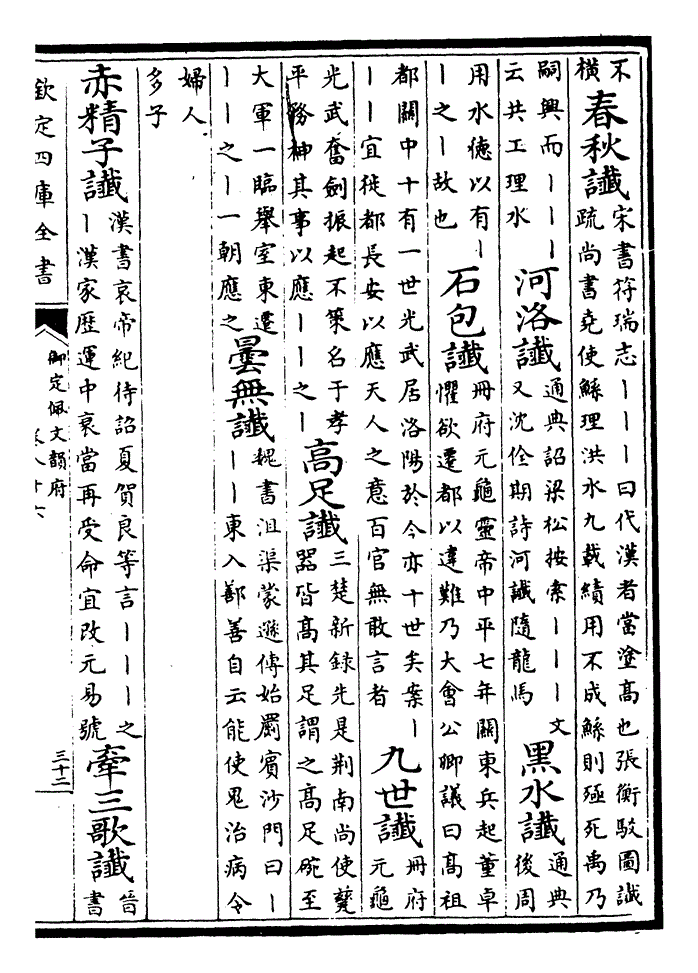 不
橫
春秋讖
宋書符瑞志｜｜｜曰代漢者當塗高也張衡駁圖讖
疏尚書堯使鯀理洪水九載績用不成鯀則殛死禹乃
嗣興而｜｜｜
云共工理水
河洛讖
通典詔梁松按索｜｜｜文
又沈佺期詩河讖隨龍馬
黑水讖
通典
後周
用水德以有｜
｜之｜故也
石包讖
冊府元龜靈帝中平七年關東兵起董卓
懼欲遷都以違難乃大會公卿議曰高祖
都關中十有一世光武居洛陽於今亦十世矣案｜
｜｜宜徙都長安以應天人之意百官無敢言者
九世讖
冊府
元龜
光武奮劍振起不策名于孝
平務神其事以應｜｜之｜
高足讖
三楚新錄先是荆南尚使甆
器皆高其足謂之高足碗至
大軍一臨舉室東遷
｜｜之｜一朝應之
曇無讖
魏書沮渠蒙遜傳始罽賓沙門曰｜
｜｜東入鄯善自云能使鬼治病令
婦人
多子
赤精子讖
漢書哀帝紀待詔夏賀良等言｜｜｜之
｜漢家歷運中衰當再受命宜改元易號
牽三歌讖
晉
書
欽定四庫全書
御定佩文韻府
卷八十六
三十二